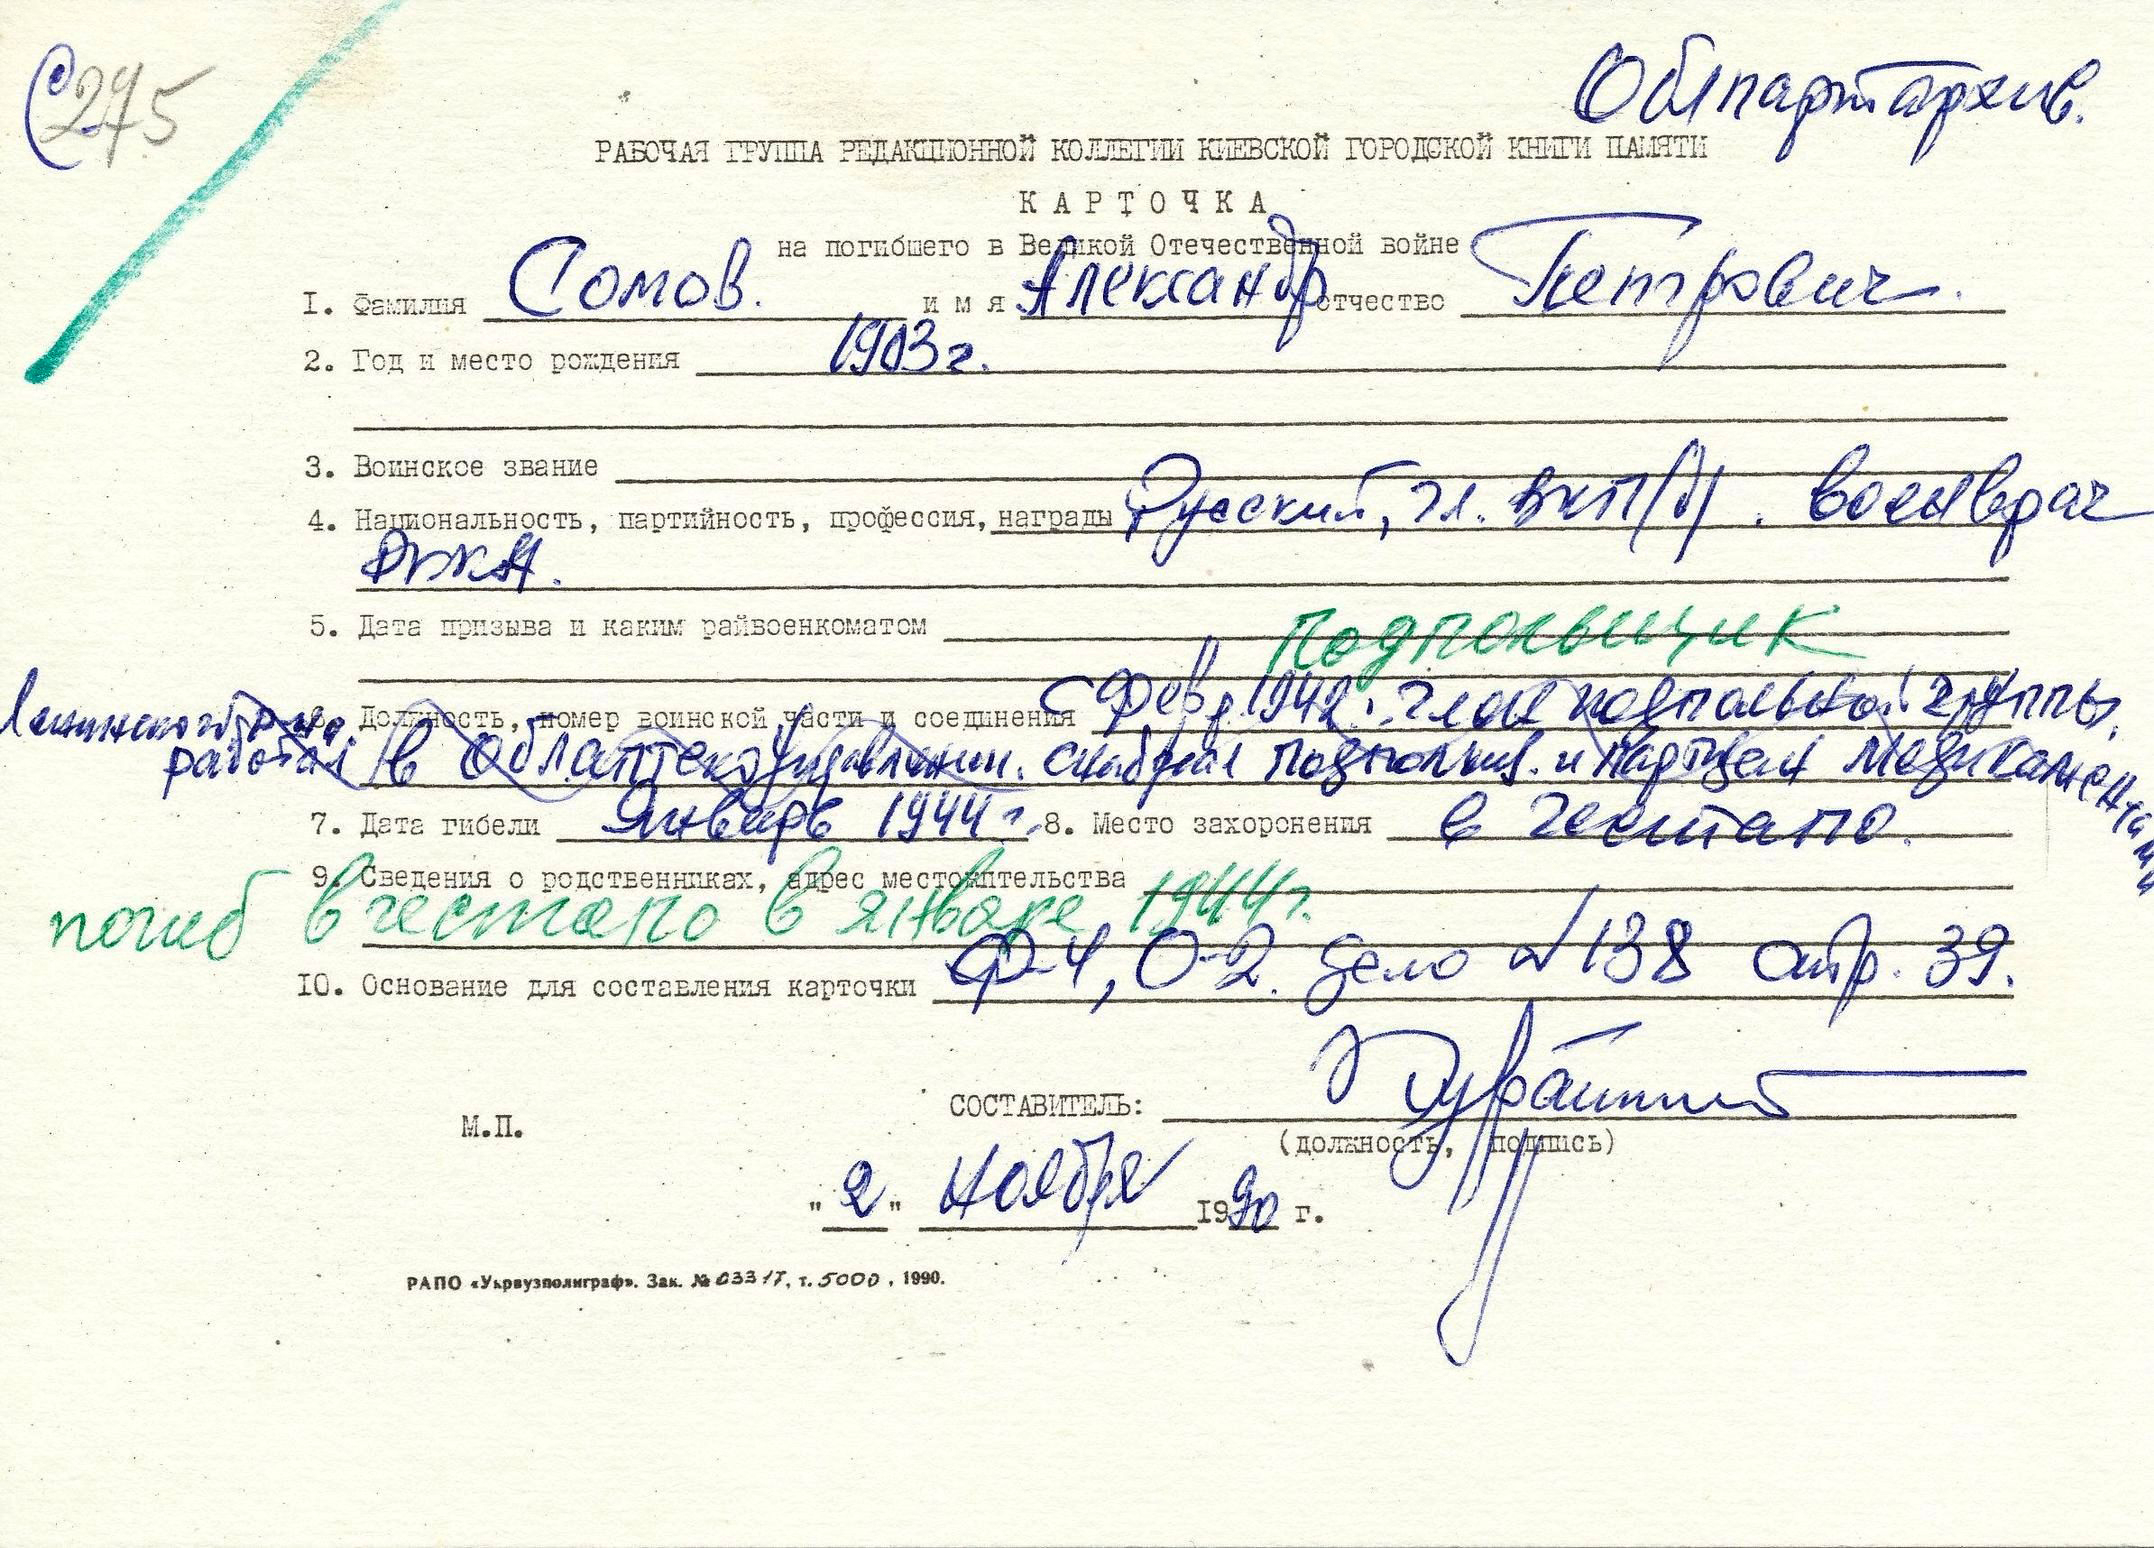 С 275
Облпартархив.
РАБОЧАЯ ГРУППА РЕДАКЦИОННОЙ КОЛЛЕГИИ КИЕВСКОЙ ГОРОДСКОЙ КНИГИ ПАМЯТИ
КАРТОЧКА
на погибшего в Великой Отечественной войне
1. Фамилия Сомов. имя Александр отчество Петрович.
2. Год и место рождения 1903 г.
3. Воинское звание
4. Национальность, партийность, профессия, награды Русский, чл. ВКП/б/. военврач
РККА.
5. Дата призыва и каким райвоенкоматом
Подпольщик
6. Должность, номер воинской части и соединения с февр. 1942 г. член подпольной группы
Ленинского р-на.
работал в Облаптекоуправлении. снабжал подпольщ. и партизан медикаментами
7. Дата гибели Январь 1944 г. 8. Место захоронения в гестапо.
9. Сведения о родственниках, адрес местожительства
погиб в гестапо в январе 1944 г.
10. Основание для составления карточки Ф-4, О-2. дело № 138 стр. 39.
СОСТАВИТЕЛЬ:
(должность, подпись)
М.П.
"2" ноября 1990 г.
РАПО «Укрвузполиграф». Зак. № 03317, т. 5000, 1990.